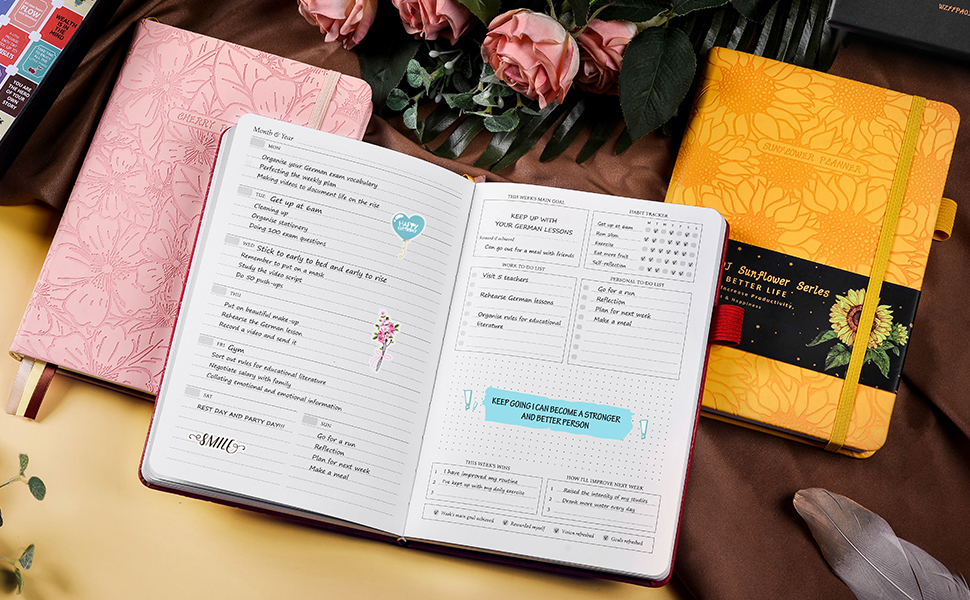 FLOW
WEALTH IS IN THE MIND
YOU ARE THE HERO OF YOUR OWN STORY
CHERRY
Month & Year
MON
Organise your German exam vocabulary
Perfecting the weekly plan
Making videos to document life on the rise
TUE
Get up at 6am
Cleaning up
Organise stationery
Doing 100 exam questions
HAPPY
WED
Stick to early to bed and early to rise
Remember to put on a mask
Study the video script
Do 50 push-ups
THU
Put on beautiful make-up
Rehearse the German lesson
Record a video and send it
FRI
Gym
Sort out rules for educational literature
Negotiate salary with family
Collating emotional and emotional information
SAT
REST DAY AND PARTY DAY!!!
SMILE
SUN
Go for a run
Reflection
Plan for next week
Make a meal
THIS WEEK'S MAIN GOAL
KEEP UP WITH
YOUR GERMAN LESSONS
Reward if achieved
Can go out for a meal with friends
HABIT TRACKER
M T W T F S S
Get up at 6am
Run 2km
Exercise
Eat more fruit
Self-reflection
WORK TO-DO LIST
Visit 5 teachers
Rehearse German lessons
Organise rules for educational
literature
PERSONAL TO-DO LIST
Go for a run
Reflection
Plan for next week
Make a meal
KEEP GOING I CAN BECOME A STRONGER
AND BETTER PERSON
THIS WEEK'S WINS
1 I have improved my routine
2 I've kept up with my daily exercise
3
HOW I'LL IMPROVE NEXT WEEK
1 Raised the intensity of my studies
2 Drank more water every day
3
Week's main goal achieved
Rewarded myself
Vision refreshed
Goals refreshed
SUNFLOWER PLANNER
Sunflower Series
BETTER LIFE
Increase Productivity,
& Happiness